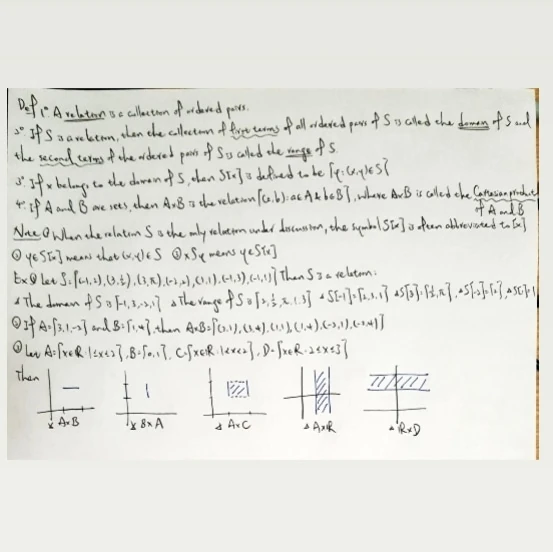 Def 1° A relation is a collection of ordered pairs.
2° If S is a relation, then the collection of first terms of all ordered pairs of S is called the domain of S and
the second terms of the ordered pairs of S is called the range of S.
3° If x belongs to the domain of S, then S[x] is defined to be {y:(x,y)∈S}
4° If A and B are sets, then A×B is the relation {(a,b): a∈A & b∈B}, where A×B is called the Cartesian product
of A and B
Note ① When the relation S is the only relation under discussion, the symbol S[x] is often abbreviated to [x]
② y∈S[x] means that (x,y)∈S ③ xSy means y∈S[x]
Ex ① Let S={(-1,2),(3,½),(3,π),(-2,2),(1,1),(-1,3),(-1,1)} Then S is a relation.
The domain of S is {-1,3,-2,1} The range of S is {2,½,π,1,3} S[-1]={2,3,1} S[3]={½,π}, S[-2]={2}, S[1]=1
② If A={3,1,-2} and B={1,4}, then A×B={(3,1),(3,4),(1,1),(1,4),(-2,1),(-2,4)}
③ Let A={x∈R:1≤x≤2}, B={0,1}, C={x∈R:1<x<2}, D={x∈R:2≤x≤3}
Then
A×B B×A A×C A×R R×D